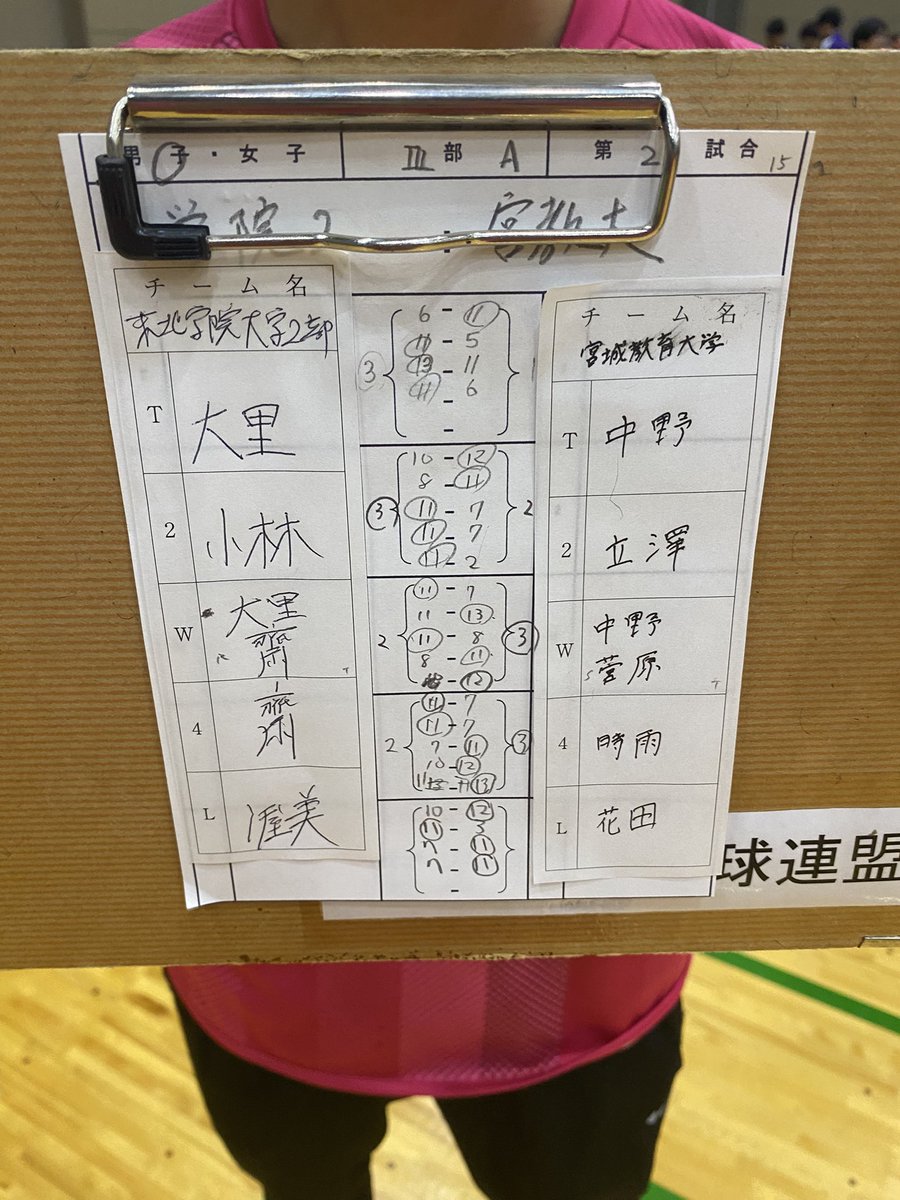 男子・女子 Ⅲ部 A 第2試合 15
学院2 : 宮教大
チーム名
東北学院大学2部
T 大里
2 小林
W 大里
齋
4 齋
L 渥美
3 6 - 11 1
11 - 5
13 - 11
11 - 6
-
3 10 - 12 2
8 - 11
11 - 7
11 - 7
11 - 2
2 11 - 7 3
11 - 13
11 - 8
8 - 11
- 12
2 11 - 7 3
11 - 7
7 - 11
10 - 12
11 - 13
10 - 12
11 -
- 11
-
チーム名
宮城教育大学
T 中野
2 立澤
W 中野
菅原
4 時雨
L 花田
球連盟